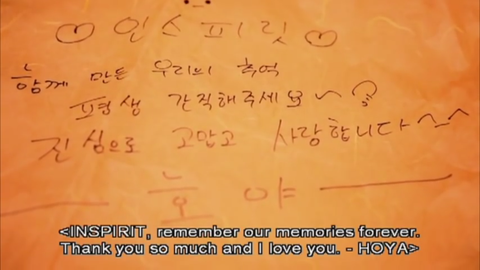 ♡인스피릿♡
함께 만든 우리의 추억
평생 간직해주세요~
진심으로 고맙고 사랑합니다^^
호야
<INSPIRIT, remember our memories forever.
Thank you so much and I love you. - HOYA>